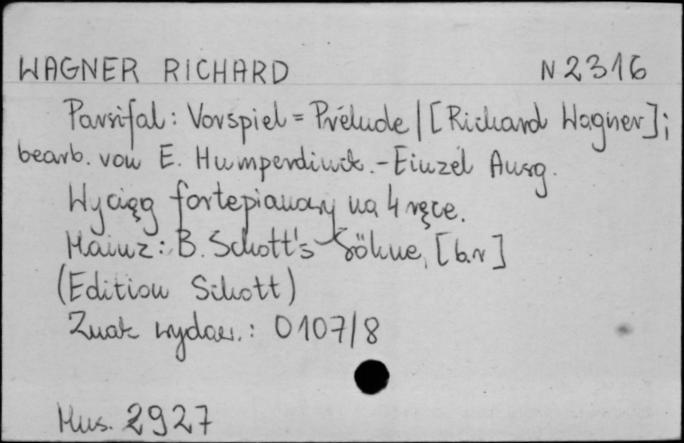 WAGNER RICHARD N 2316
Parsifal: Vorspiel = Prélude / [Richard Wagner];
bearb. von E. Humperdinck. - Einzel Ausg.
Wyciąg fortepianowy na 4 ręce.
Mainz: B. Schott's Söhne, [b.r]
(Edition Schott)
Znak wydaw.: 0107/8
Mus. 2927